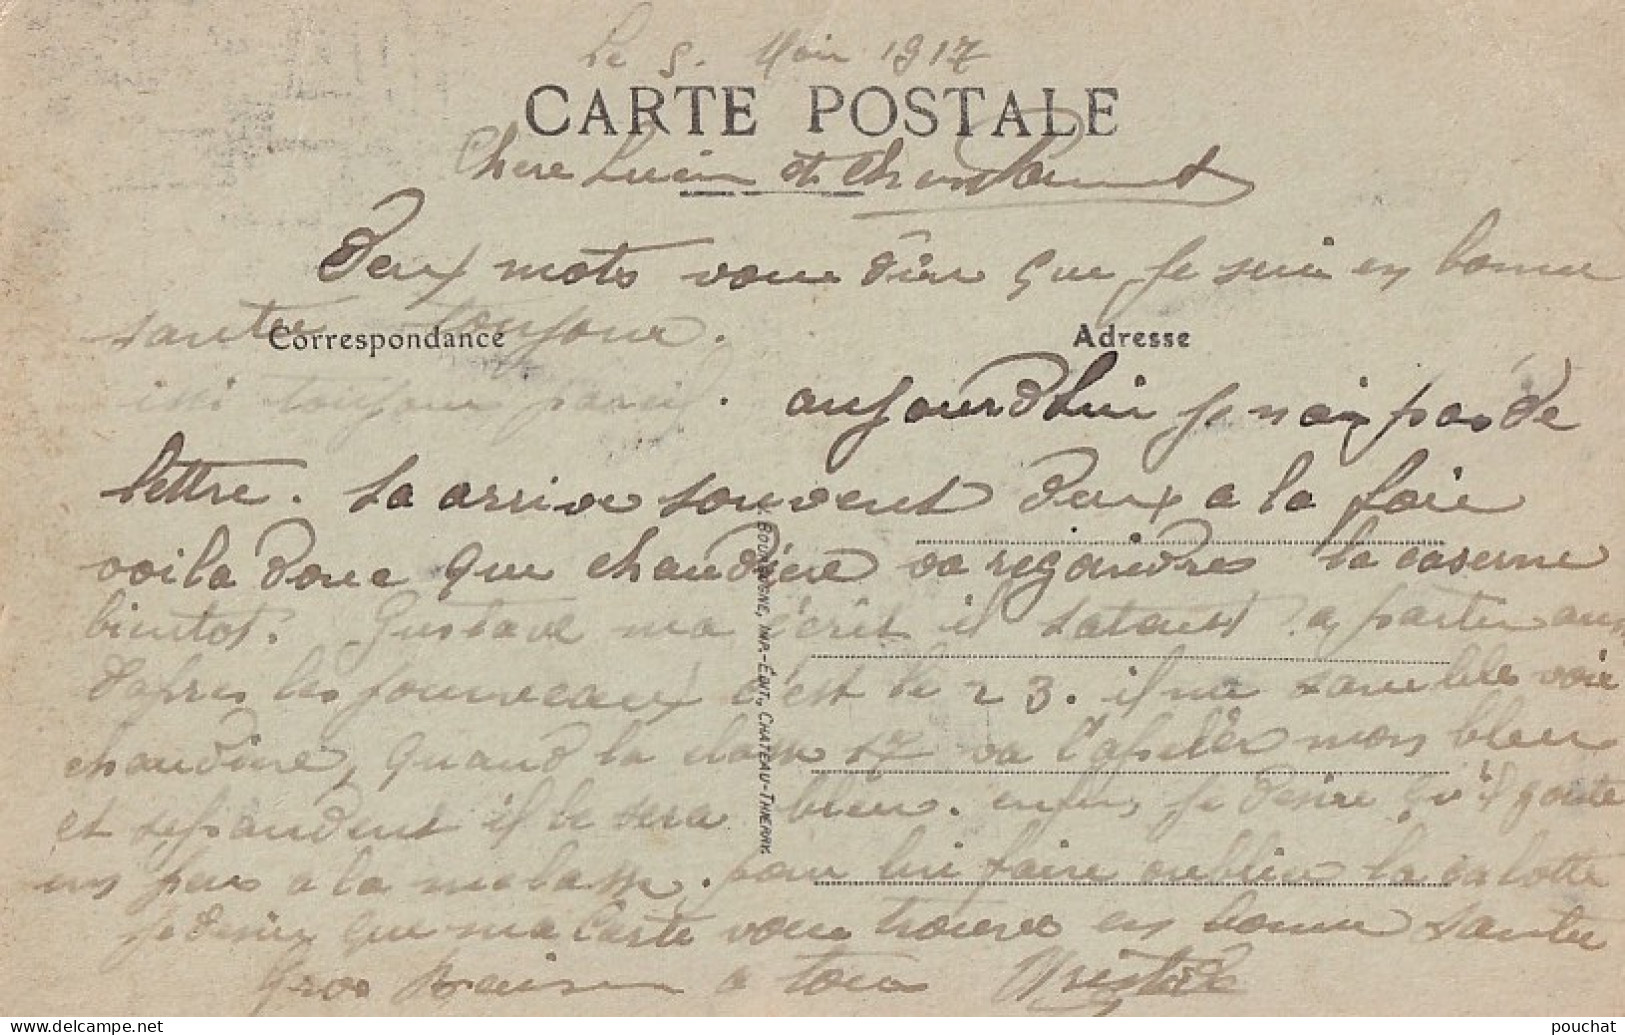 Le 5. Mai 1917
CARTE POSTALE
Chere Lucien et
Deux mots vous dire que je suis en bonne
santer toujour.
Correspondance
Adresse
issi toujour pareif. aujourdhui je n ai pas de
lettre. sa arrive souvent deux a la foie
voila donc que chaudiere va regoindres la caserne
bientot. Gustave ma écrit il satens a partir aussi
dapres les jourveaux c'est le 23. il me
chaudiere, quand la class 17 va l'apeler mon bleu
et sependent il le sera bleu. enfin je desire qu'il goute
un peu a la melasse. pour lui faire oublier la calotte
je desire que ma Carte vous trouve en bonne santer
Gros Baiser a tous Aristide
BOURGOGNE, IMP.-ÉDIT., CHATEAU-THIERRY.
www.delcampe.net
pouchat